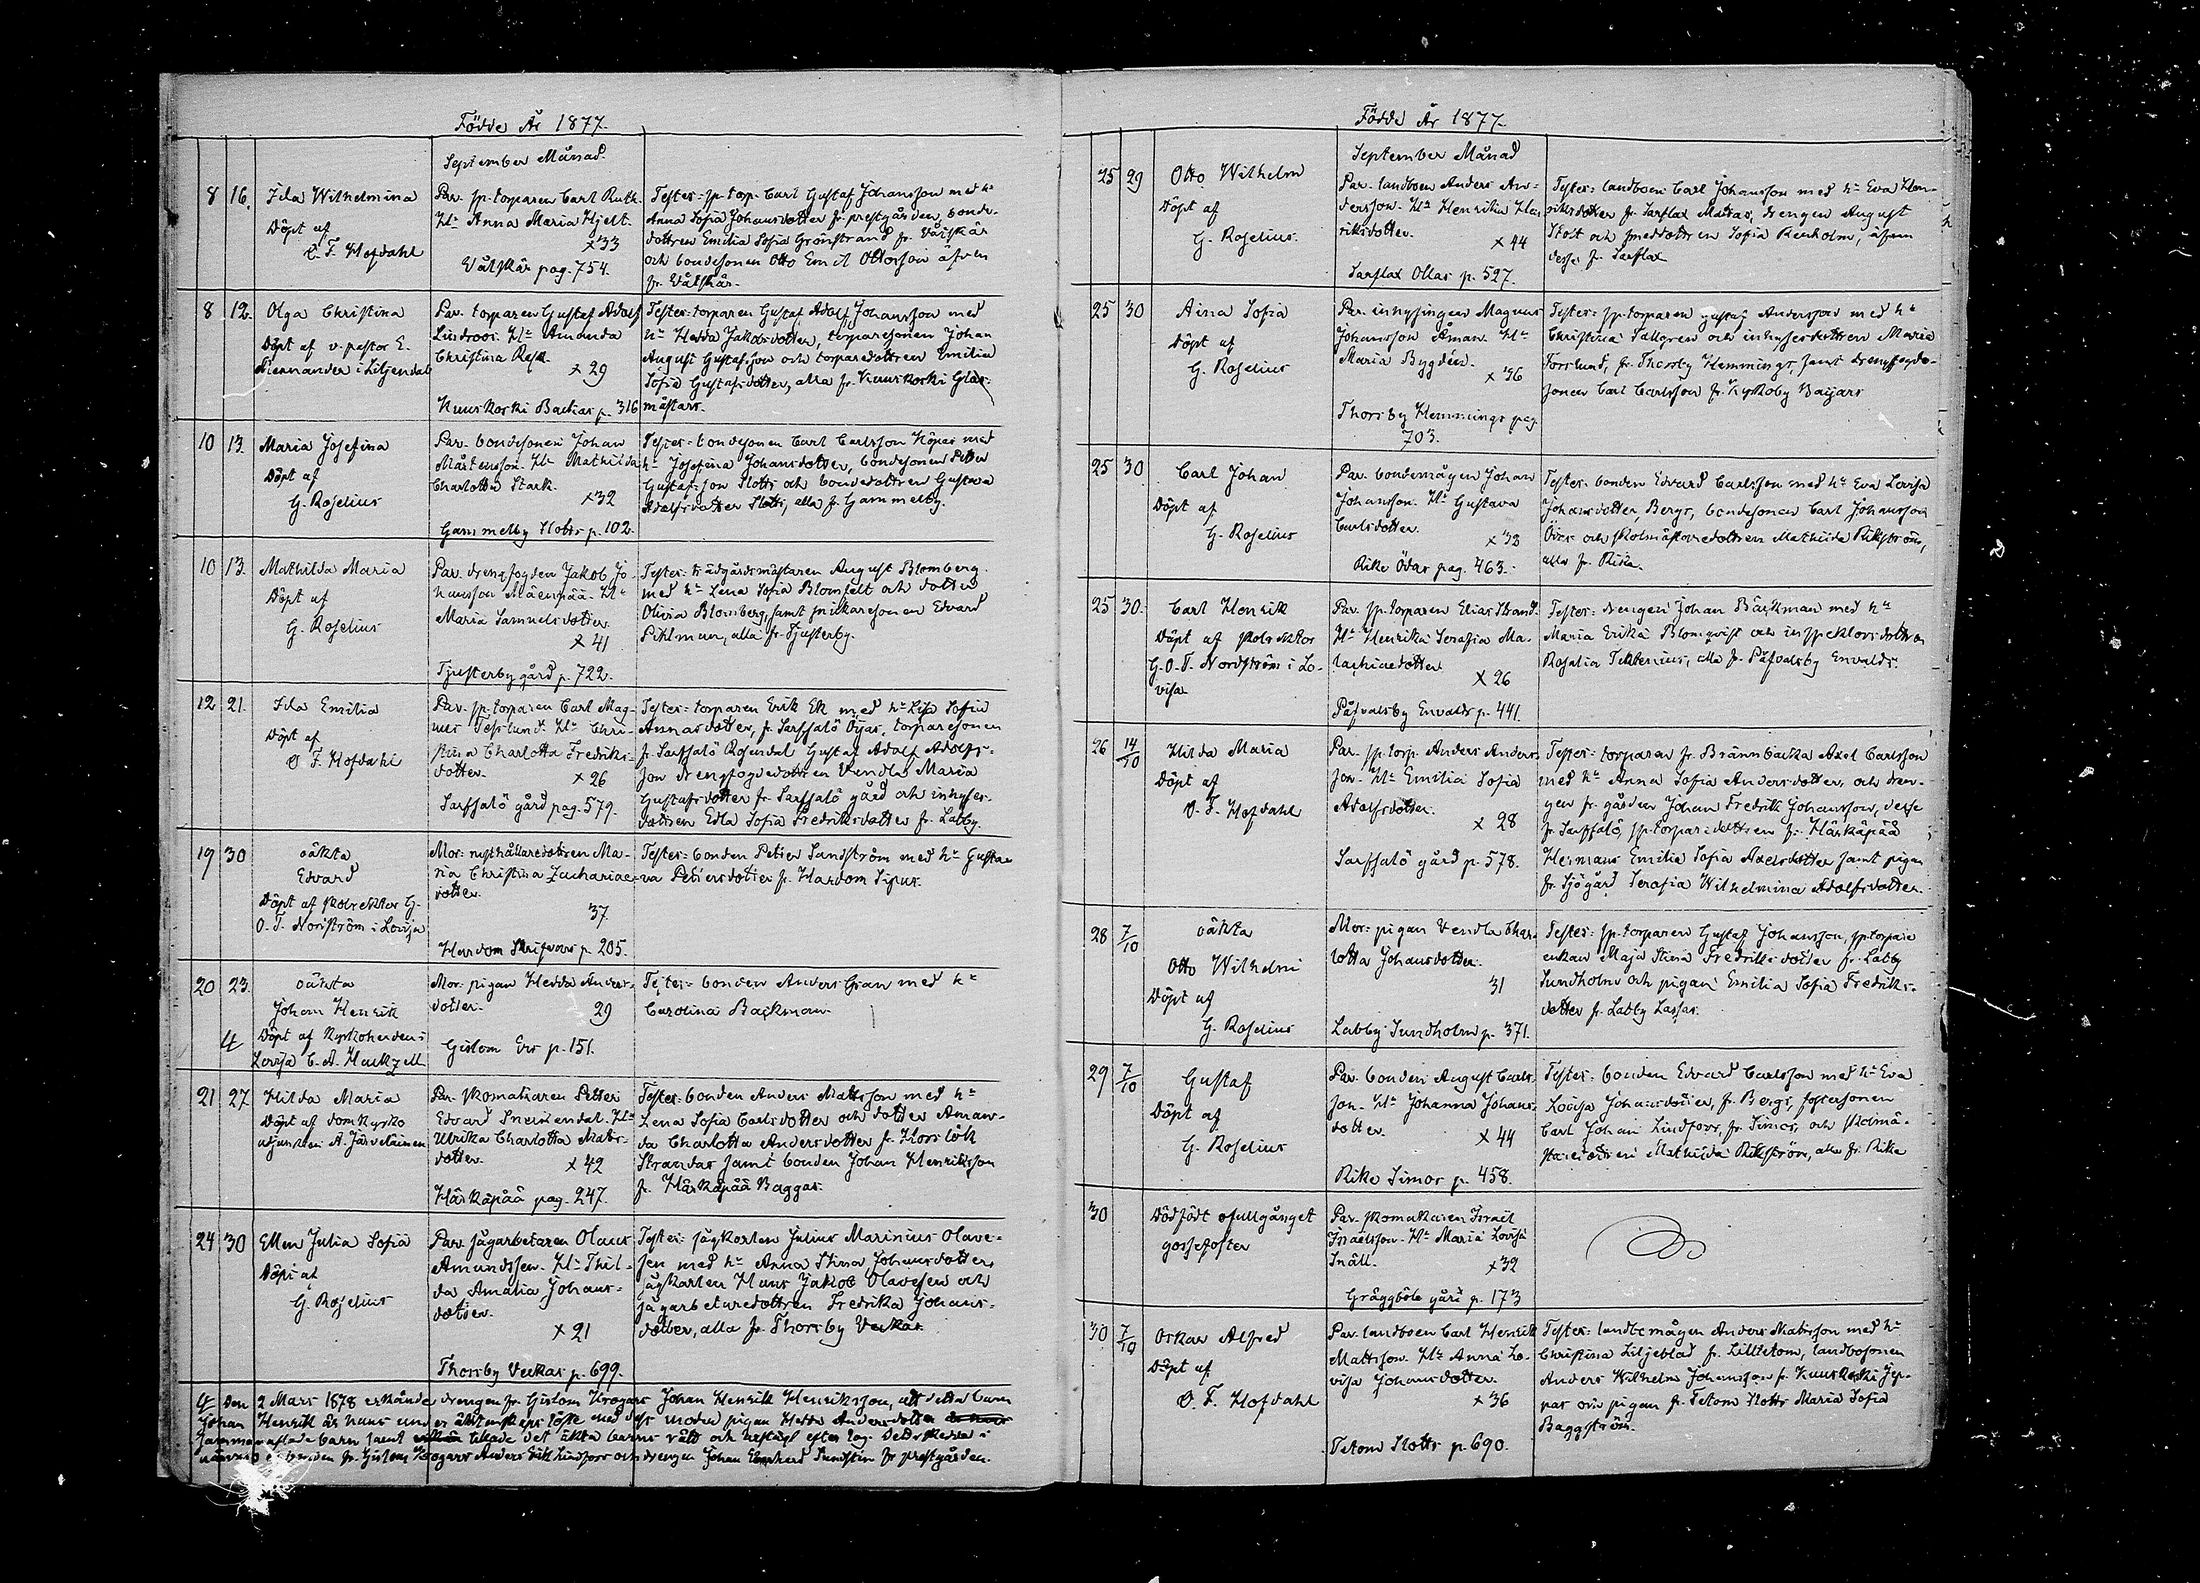 Födde År 1877.
September Månad.
8 16. Ida Wilhelmina
Döpt af
O. F. Hofdahl
Par. sp. torparen Carl Ruth.
Hu Anna Maria Hjelt.
x 33
Våtskär pag. 754.
Testes: sp. torp. Carl Gustaf Johansson med hu
Anna Sofia Johansdotter fr. prestgården, bonde-
dottren Emilia Sofia Grönstrand fr. Våtskär
och bondesonen Otto Emil Ottosson äfven
fr. Våtskär.
8 12. Olga Christina
Döpt af v. pastor E.
Fernander i Liljendal
Par. torparen Gustaf Adolf
Lindroos. Hu Amanda
Christina Rask.
x 29
Kuuskoski Backas p. 316
Testes: torparen Gustaf Adolf Johansson med
hu Hedda Jakobsdotter, torparesonen Johan
August Gustafsson och torparedottren Emilia
Sofia Gustafsdotter, alla fr. Kuuskoski Glas-
mästars.
10 13. Maria Josefina
Döpt af
G. Roselius
Par. bondesonen Johan
Mårtensson. Hu Mathilda
Charlotta Stark.
x 32
Gammelby Hobts p. 102.
Testes: bondesonen Carl Carlsson Köpas med
hu Josefina Johansdotter, bondesonen Petter
Gustafsson Slotts och bondedottren Gustava
Adolfsdotter Slotts, alla fr. Gammelby.
10 13. Mathilda Maria
Döpt af
G. Roselius
Par. drengfogden Jakob Jo-
hansson Mäenpää. Hu
Maria Samuelsdotter
x 41
Tjusterby gård p. 722.
Testes: trädgårdsmästaren August Blomberg
med hu Lena Sofia Blomfelt och dotter
Olivia Blomberg, samt Edvard
Pihlman, alla fr. Tjusterby.
12 21. Ida Emilia
Döpt af
O. F. Hofdahl
Par. sp. torparen Carl Mag-
nus Teslund. Hu Chri-
stina Charlotta Fredriks-
dotter.
x 26
Sarfsalö gård pag. 579.
Testes: torparen Erik Ek med hu Lisa Sofia
Annasdotter, fr. Sarfsalö Öjas, torparesonen
fr. Sarfsalö Rosendal Gustaf Adolf Adolfs-
son drengfogdedottren Vendla Maria
Gustafsdotter fr. Sarfsalö gård och inhyses-
dottren Edla Sofia Fredriksdotter fr. Labby.
19 30 oäkta
Edvard
Döpt af skolrektor G.
O. T. Nordström i Lovisa
Mor: rusthållaredottren Ma-
ria Christina Zachariae-
dotter.
37
Hardom Skrifvars p. 205.
Testes: bonden Petter Sundström med hu Gusta-
va Pettersdotter fr. Hardom Sipus.
20 23. oäkta
Johan Henrik
4 Döpt af kyrkoherden i
Lovisa C. A. Hackzell
Mor. pigan Hedda Anders-
dotter.
29
Gislom Ers p. 151.
Testes: bonden Anders Gran med hu
Carolina Backman.
21 27. Hilda Maria
Döpt af domkyrko
adjunkten A. Järveläinen
Par. skomakaren Petter
Edvard Snellendal. Hu
Ulrika Charlotta Mats-
dotter.
x 42
Härkäpää pag. 247.
Testes: bonden Anders Mattsson med hu
Lena Sofia Carlsdotter och dotter Aman-
da Charlotta Andersdotter fr. Horslök
Strandas samt bonden Johan Henriksson
fr. Härkäpää Baggas.
24 30 Ellen Julia Sofia
Döpt af
G. Roselius
Par. sågarbetaren Olaus
Amundssen. Hu Thil-
da Amalia Johans-
dotter.
x 21
Thorsby Veckas p. 699.
Testes: sågkarlen Julius Marinius Olave-
sen med hu Anna Stina Johansdotter,
sågkarlen Hans Jakob Olavesen och
sågarbetaredottren Fredrika Johans-
dotter, alla fr. Thorsby Veckas.
4 Den 2 Mars 1878 erkände drengen fr. Gislom Krogars Johan Henrik Henriksson, att detta barn
Johan Henrik är hans under äktenskaps löfte med dess moder pigan Hedda Andersdotter
sammanaflade barn samt tillade det äkta barns rätt och
närvaro af bonden fr. Gislom Krogars Anders Erik Lindfors och drengen Johan Sundstén fr. prestgården.
Födde År 1877.
September Månad
25 29 Otto Wilhelm
Döpt af
G. Roselius.
Par. landboen Anders An-
dersson. Hu Henrika Hen-
riksdotter.
x 44
Sarflax Ollas p. 527.
Testes: landboen Carl Johansson med hu Eva Hen-
riksdotter fr. Sarflax Mattas, drengen August
Stolt och smeddottren Sofia Renholm, äfven
desse fr. Sarflax
25 30 Aina Sofia
Döpt af
G. Roselius
Par. inhysingen Magnus
Johansson Åman. Hu
Maria Bygdén.
x 36
Thorsby Hemmings pag.
703.
Testes: sp. torparen Gustaf Andersson med hu
Christina Tallgren och inhysesdottren Maria
Forslund, fr. Thorsby Hemmings, samt drengfogde-
sonen Carl Carlsson fr. Kyrkoby Baijars
25 30 Carl Johan
Döpt af
G. Roselius
Par. bondemågen Johan
Johansson. Hu Gustava
Carlsdotter.
x 32
Rike Ödas pag. 463.
Testes: bonden Edvard Carlsson med hu Eva Lovisa
Johansdotter, Bergs, bondesonen Carl Johansson
Övers och skolmästaredottren Mathilda Rikström,
alla fr. Rike.
25 30. Carl Henrik
Döpt af skolrektor
G. O. T. Nordström i Lo-
visa
Par. sp. torparen Elias Strand.
Hu Henrika Serafia Ma-
lachiaedotter
x 26
Påfvalsby Envalds p. 441.
Testes: drengen Johan Bäckman med hu
Maria Erika Blomqvist och inspektorsdottren
Rosalia Tikterius, alla fr. Påfvalsby Envalds.
26 14/10 Hilda Maria
Döpt af
O. F. Hofdahl
Par. sp. torp. Anders Anders-
son. Hu Emilia Sofia
Adolfsdotter.
x 28
Sarfsalö gård p. 578.
Testes: torparen fr. Brännbacka Axel Carlsson
med hu Anna Sofia Andersdotter, och dren-
gen fr. gården Johan Fredrik Johansson, desse
fr. Sarfsalö, sp. torparedottren fr. Härkäpää
Hermans Emilia Sofia Axelsdotter samt pigan
fr. Sjögård Serafia Wilhelmina Adolfsdotter.
28 7/10 oäkta
Otto Wilhelm
Döpt af
G. Roselius
Mor: pigan Vendla Char-
lotta Johansdotter.
31
Labby Sundholm p. 371.
Testes: sp. torparen Gustaf Johansson, sp. torpare
enkan Maja Stina Fredriksdotter fr. Labby
Sundholm och pigan Emilia Sofia Fredriks-
dotter fr. Labby Lassas.
29 7/10 Gustaf
Döpt af
G. Roselius
Par. bonden August Carls-
son. Hu Johanna Johans-
dotter.
x 44
Rike Simos p. 458.
Testes: bonden Edvard Carlsson med hu Eva
Lovisa Johansdotter, fr. Bergs, fostersonen
Carl Johan Lindfors, fr. Simos, och skolmä-
staredottren Mathilda Rikström, alla fr. Rike
30 Dödfödt ofullgånget
gossefoster
Par. skomakaren Israel
Israelsson. Hu Maria Lovisa
Snäll.
x 32
Gräggböle gård p. 173
30 7/10 Oskar Alfred
Döpt af
O. F. Hofdahl
Par. landboen Carl Henrik
Mattsson. Hu Anna Lo-
visa Johansdotter.
x 36
Tetom Slotts p. 690.
Testes: landbomågen Anders Mattsson med hu
Christina Liljeblad fr. Lilltetom, landbosonen
Anders Wilhelm Johansson fr. Kuuskoski Jep-
pas och pigan fr. Tetom Slotts Maria Sofia
Baggström.